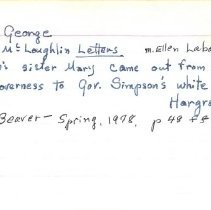 George
McLoughlin Letters m. Ellen Labo
's sister Mary came out from
overness to Gov. Simpson's white
Hargr
Beaver - Spring, 1978, p 48 +